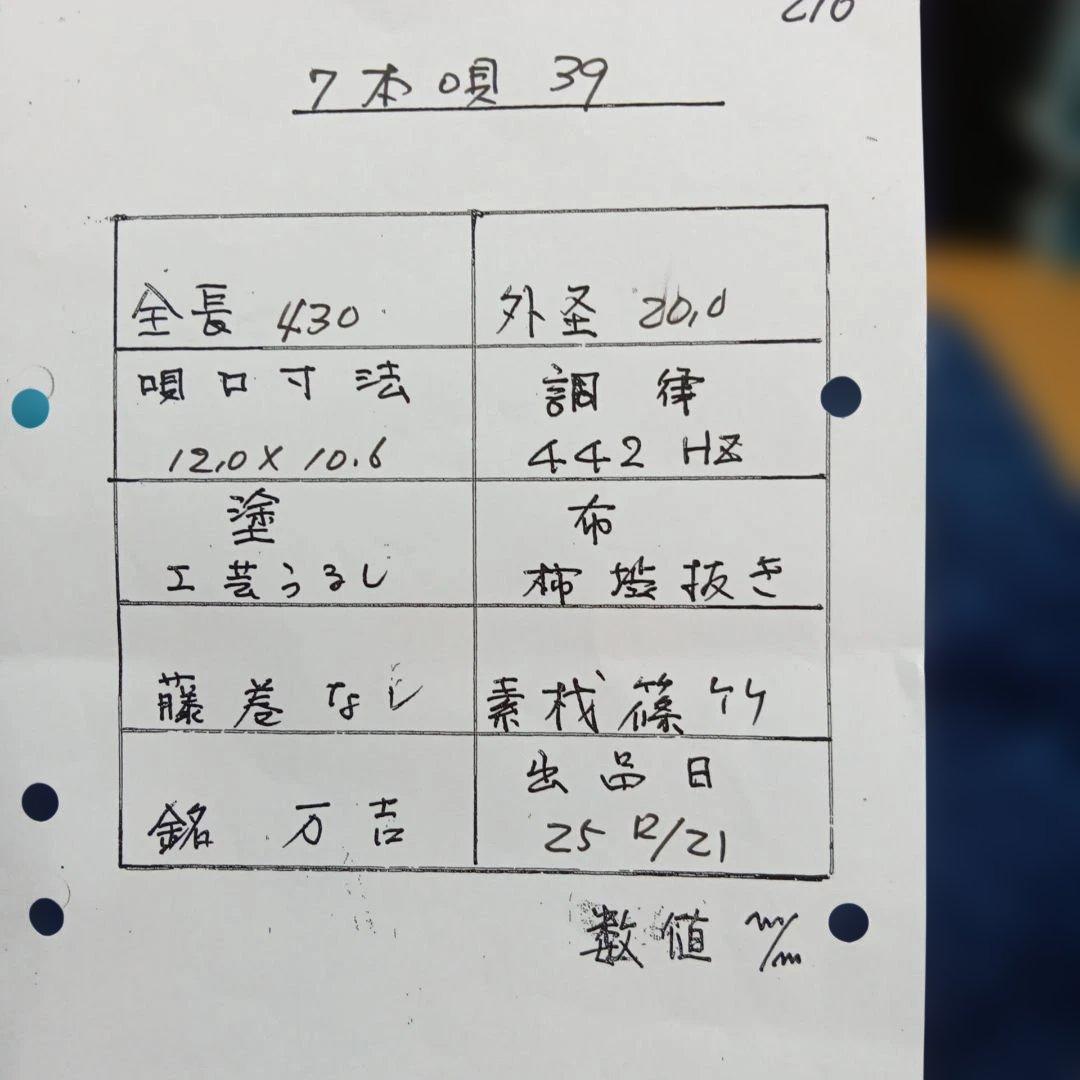 7本唄 39
全長 430
外径 20.0
唄口寸法
12.0 × 10.6
調律
442 HZ
塗
工芸うるし
布
柿澁抜き
藤巻なし
素材篠竹
銘 万吉
出品日
25 12/21
数値 m/m